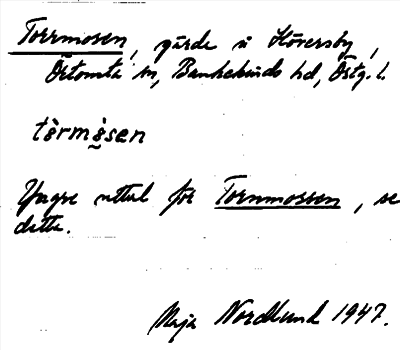 Torrmosen, gärde i Höversby,
Örtomta sn, Bankekinds hd, Östg. l.
tòrmò̰sen
Yngre uttal för Tornmossen, se
detta.
Maja Nordlund 1947.